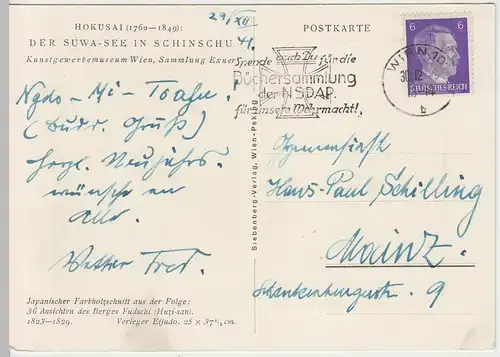 HOKUSAI (1760–1849):
DER SUWA-SEE IN SCHINSCHU
Kunstgewerbemuseum Wien, Sammlung Exner
29/XII
41.
(Budr. Gruß)
Herzl. Neujahrs-
wünsche an
alle.
Vetter Fred.
Japanischer Farbholzschnitt aus der Folge:
36 Ansichten des Berges Fudschi (Huzi-san).
1823–1829. Verleger Eijudo. 25 × 37 1/2 cm.
Siebenberg-Verlag, Wien-Peking
POSTKARTE
Spende auch Du für die
Büchersammlung
der NSDAP.
für unsere Wehrmacht!
WIEN
30.12
b
6 6
DEUTSCHES REICH
Hans-Paul Schilling
Mainz.
9.